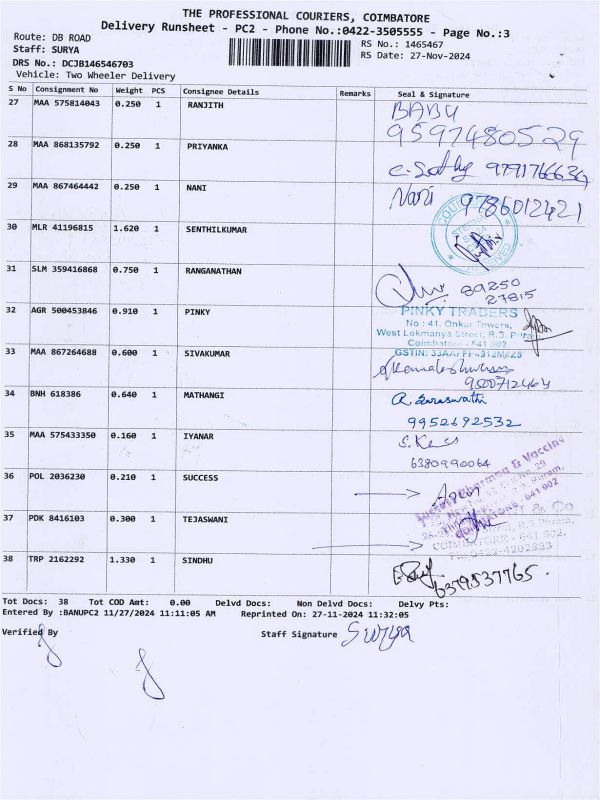 THE PROFESSIONAL COURIERS, COIMBATORE
Delivery Runsheet - PC2 - Phone No.:0422-3505555 - Page No.:3
Route: DB ROAD
RS No.: 1465467
Staff: SURYA
RS Date: 27-Nov-2024
DRS No.: DCJB146546703
Vehicle: Two Wheeler Delivery
S No Consignment No Weight PCS Consignee Details Remarks Seal & Signature
27 MAA 575814043 0.250 1 RANJITH BABU
9597480529
28 MAA 868135792 0.250 1 PRIYANKA
9791766634
29 MAA 867464442 0.250 1 NANI Nani 9786012421
30 MLR 41196815 1.620 1 SENTHILKUMAR
31 SLM 359416868 0.750 1 RANGANATHAN 89250
27815
32 AGR 500453846 0.910 1 PINKY PINKY TRADERS
No : 41, Onkar Towers,
West Lokmanya Street, R.S. Puram
Coimbatore - 641 002.
GSTIN:
33 MAA 867264688 0.600 1 SIVAKUMAR
9500712464
34 BNH 618386 0.640 1 MATHANGI R. Saraswathi
9952692532
35 MAA 575433350 0.160 1 IYANAR
6380990064
36 POL 2036230 0.210 1 SUCCESS
Success Pharma & Vaccine
37 PDK 8416103 0.300 1 TEJASWANI
38 TRP 2162292 1.330 1 SINDHU
6379537765.
Tot Docs: 38 Tot COD Amt: 0.00 Delvd Docs: Non Delvd Docs: Delvy Pts:
Entered By :BANUPC2 11/27/2024 11:11:05 AM Reprinted On: 27-11-2024 11:32:05
Verified By Staff Signature Surya